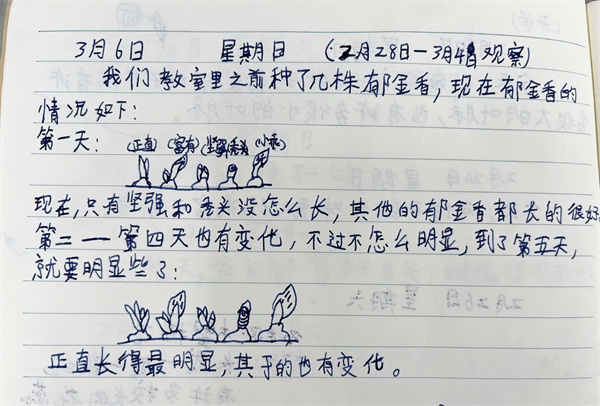 3月6日 星期日 (2月28日—3月4日观察)
我们教室里之前种了几株郁金香,现在郁金香的
情况如下:
第一天: (正直) (富有) (坚强) (秃头) (小乖)
现在,只有坚强和秃头没怎么长,其他的郁金香都长的很好
第二——第四天也有变化,不过不怎么明显,到了第五天,
就要明显些了:
正直长得最明显,其于的也有变化。